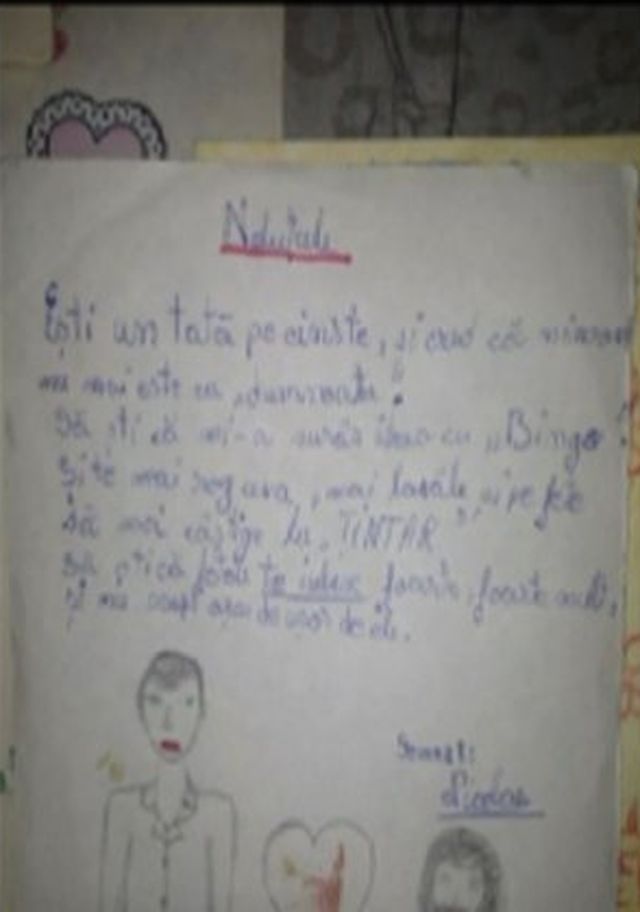 Ești un tată pe cinste, și cred că nimeni
nu mai este ca dumneata!
Să ști că mi-a surâs ideea cu „Bingo"!
Și te mai rog ceva, mai lasăle și pe fete
să mai câștige la „ȚINTAR"
Să ști că fetele te iubesc foarte, foarte mult,
și nu scapi așa de ușor de ele.
Semnat: